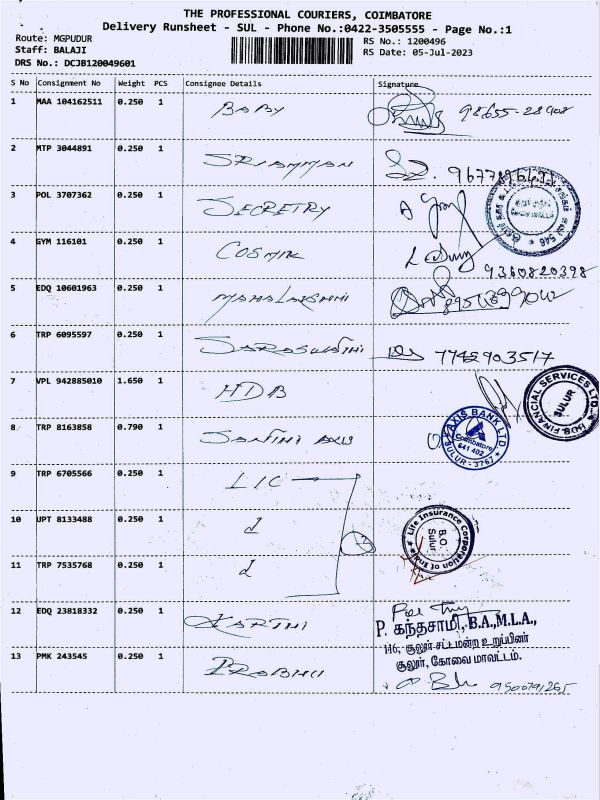 THE PROFESSIONAL COURIERS, COIMBATORE
Delivery Runsheet - SUL - Phone No.:0422-3505555 - Page No.:1
Route: MGPUDUR
RS No.: 1200496
Staff: BALAJI
RS Date: 05-Jul-2023
DRS No.: DCJB120049601
S No Consignment No Weight PCS Consignee Details Signature
1 MAA 104162511 0.250 1 BABY 98655-28908
2 MTP 3044891 0.250 1 SRIAMMAN
3 POL 3707362 0.250 1 SECRETRY
546
4 GYM 116101 0.250 1 COSMIK
9360820398
5 EDQ 10601963 0.250 1 MAHALAKSHMI
6 TRP 6095597 0.250 1 SARASWATHI 7742903517
7 VPL 942885010 1.650 1 HDB
HDB FINANCIAL SERVICES LTD
SULUR
8 TRP 8163858 0.790 1 SANTHI AXIS
AXIS BANK LTD
Coimbatore
641 402
SULUR - 3767
9 TRP 6705566 0.250 1 LIC
10 UPT 8133488 0.250 1
Life Insurance Corporation of India
B.O.
Sulur
11 TRP 7535768 0.250 1
12 EDQ 23818332 0.250 1 KARTHI
P. கந்தசாமி, B.A.,M.L.A.,
116, சூலூர் சட்டமன்ற உறுப்பினர்
சூலூர், கோவை மாவட்டம்.
13 PMK 243545 0.250 1 PRABHU
9500791265